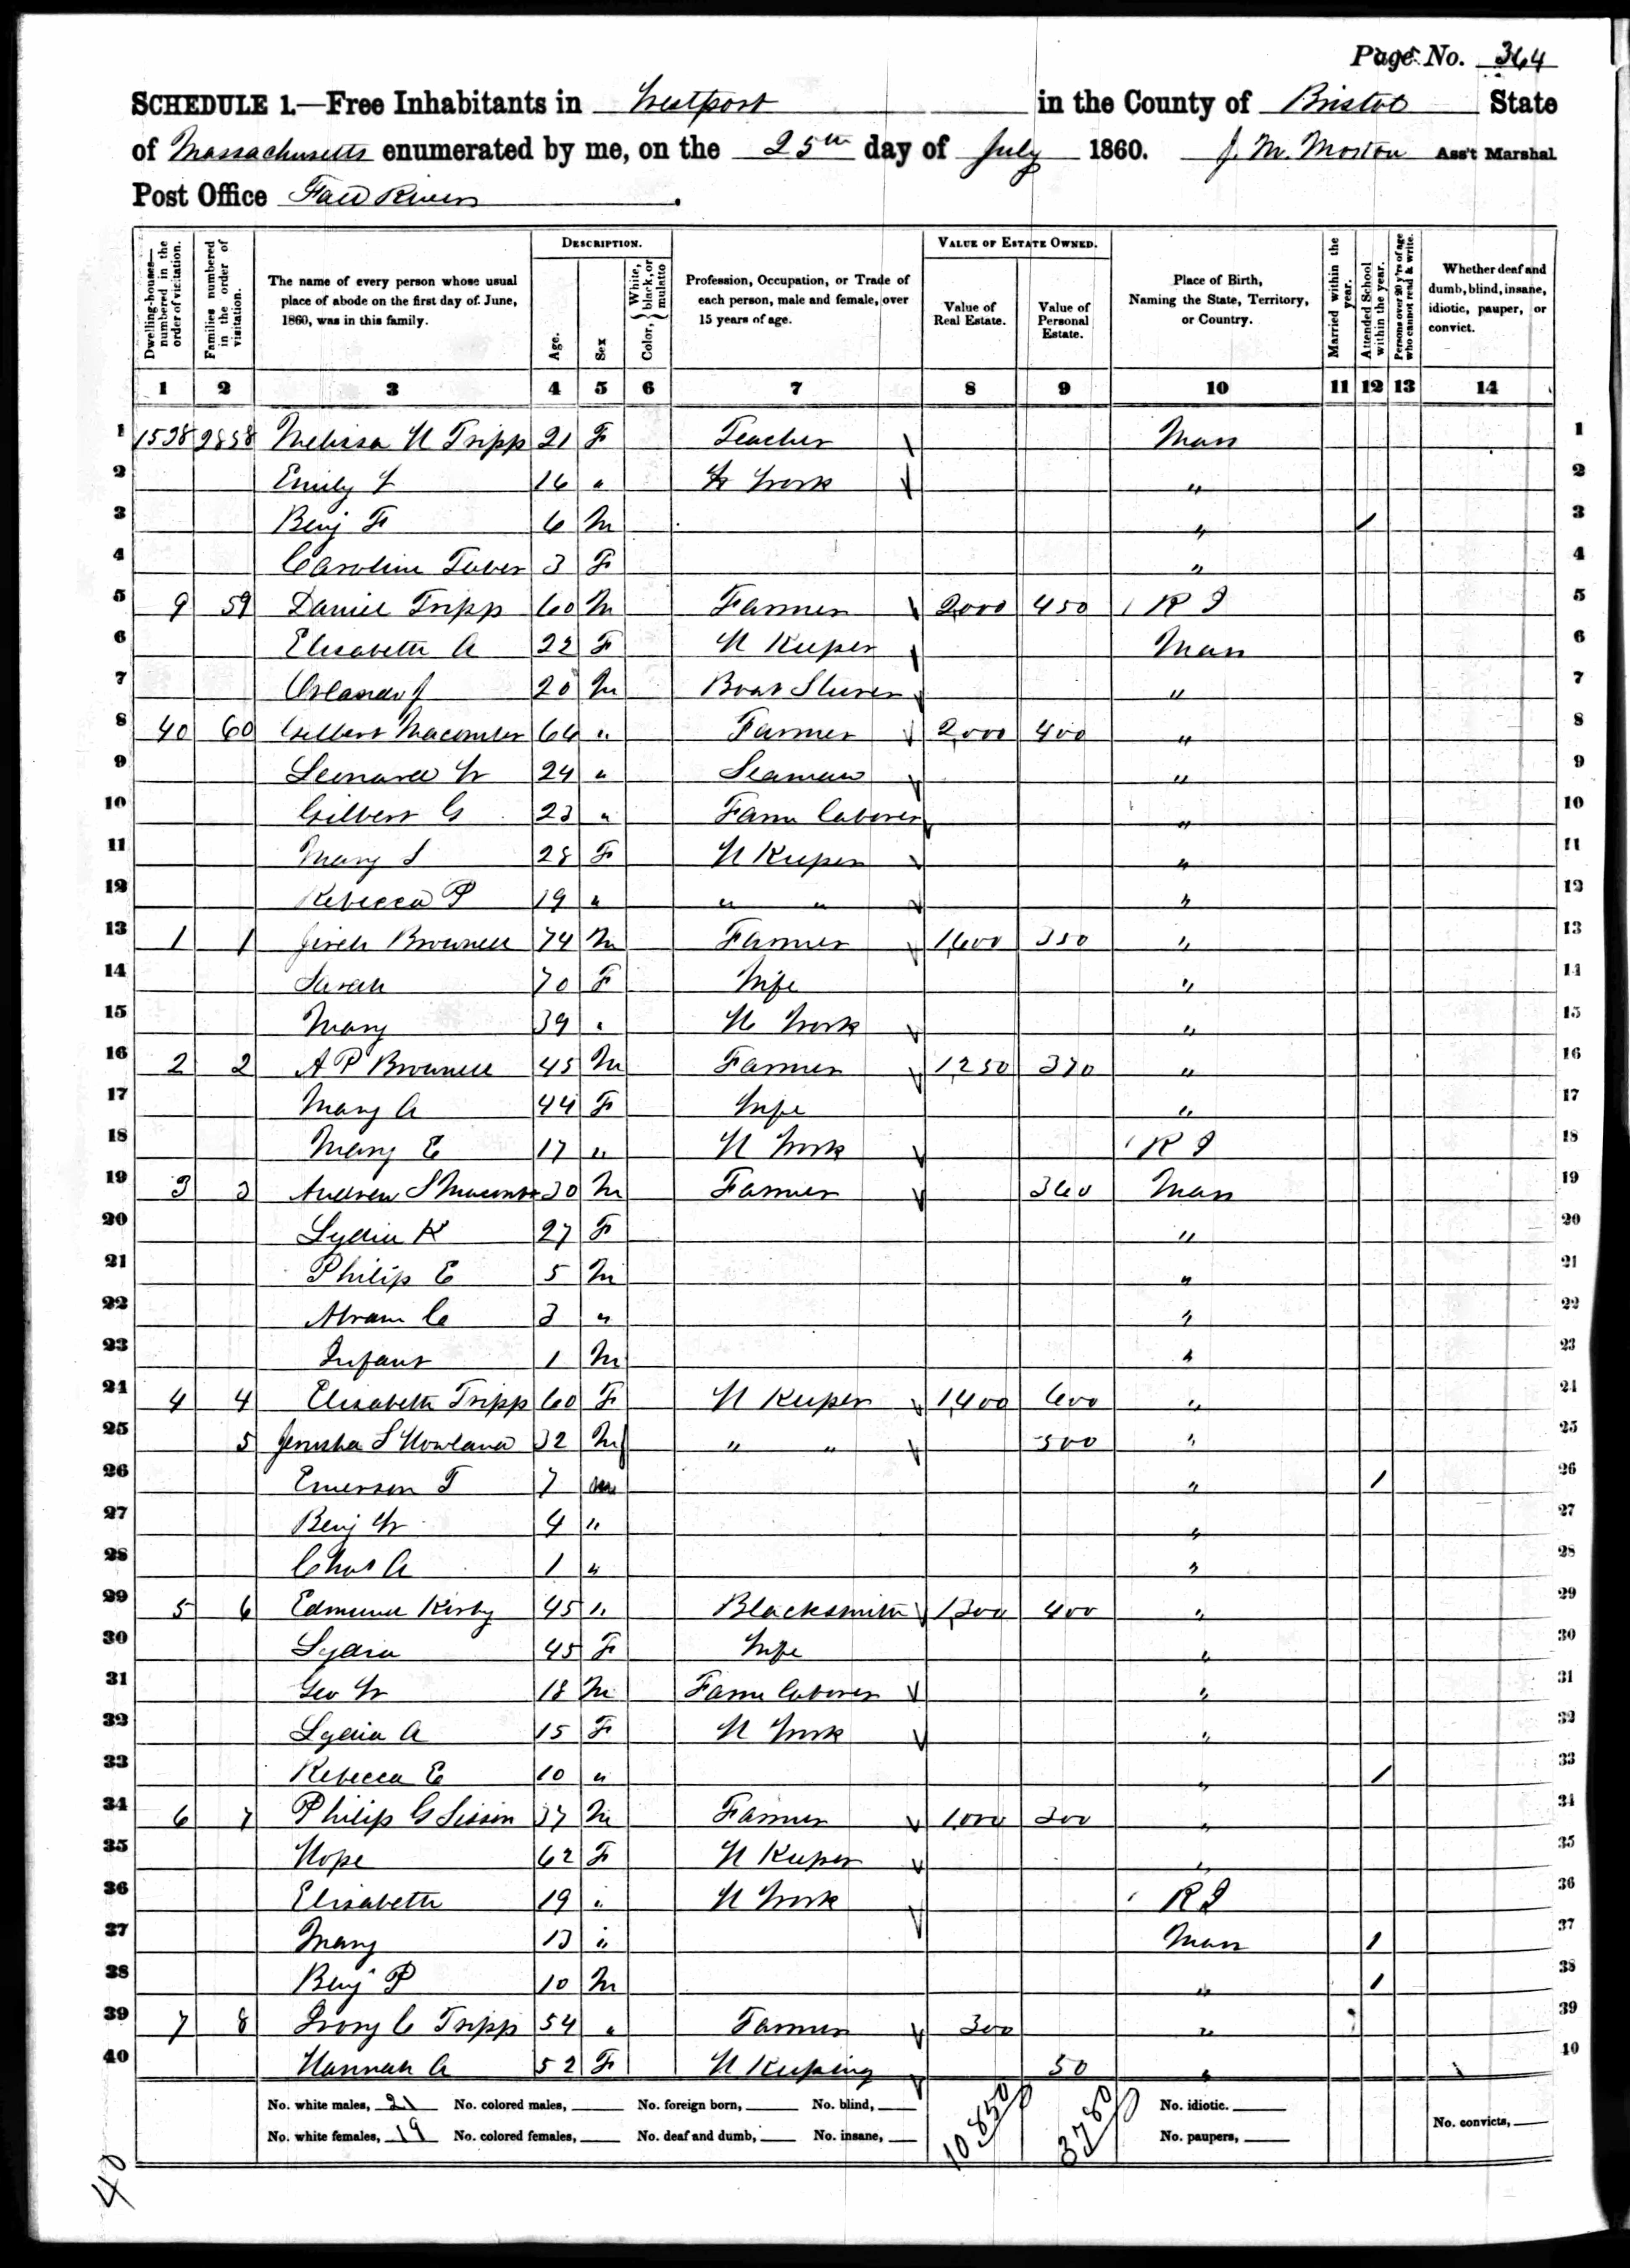 Page No. 364
SCHEDULE 1.—Free Inhabitants in Westport in the County of Bristol State
of Massachusetts enumerated by me, on the 25th day of July 1860. J. M. Morton Ass't Marshal
Post Office Fall River.
Dwelling-houses—numbered in the order of visitation.
Families numbered in the order of visitation.
The name of every person whose usual place of abode on the first day of June, 1860, was in this family.
DESCRIPTION.
Age.
Sex
Color, { White, black, or mulatto
Profession, Occupation, or Trade of each person, male and female, over 15 years of age.
VALUE OF ESTATE OWNED.
Value of Real Estate.
Value of Personal Estate.
Place of Birth, Naming the State, Territory, or Country.
Married within the year.
Attended School within the year.
Persons over 20 y'rs of age who cannot read & write.
Whether deaf and dumb, blind, insane, idiotic, pauper, or convict.
1 2 3 4 5 6 7 8 9 10 11 12 13 14
1 1538 2858 Melissa H Tripp 21 F Teacher Mass 1
2 Emily 16 " H Work " 2
3 Benj F 6 M " / 3
4 Caroline Taber 3 F " 4
5 9 59 Daniel Tripp 60 M Farmer 2,000 450 R I 5
6 Elisabeth A 22 F H Keeper Mass 6
7 Orlando J 20 M Boat " 7
8 40 60 Gilbert Macomber 66 " Farmer 2,000 400 " 8
9 Leonard W 24 " Seaman " 9
10 Gilbert G 23 " Farm laborer " 10
11 Mary S 28 F H Keeper " 11
12 Rebecca P 19 " " " " 12
13 1 1 Jireh Brownell 74 M Farmer 1,600 350 " 13
14 Sarah 70 F Wife " 14
15 Mary 39 " H Work " 15
16 2 2 A P Brownell 45 M Farmer 1,250 370 " 16
17 Mary A 44 F Wife " 17
18 Mary E 17 " H Work R I 18
19 3 3 Andrew S Macomber 30 M Farmer 360 Mass 19
20 Lydia K 27 F " 20
21 Philip E 5 M " 21
22 Abram C 3 " " 22
23 Infant 1 M " 23
24 4 4 Elisabeth Tripp 60 F H Keeper 1,400 600 " 24
25 5 Jerusha S Howland 32 " " 500 " 25
26 Emerson T 7 M " / 26
27 Benj W 4 " " 27
28 Chas A 1 " " 28
29 5 6 Edmund Kirby 45 " Blacksmith 1,300 400 " 29
30 Lydia 45 F Wife " 30
31 Geo W 18 M Farm laborer " 31
32 Lydia A 15 F H Work " 32
33 Rebecca E 10 " " / 33
34 6 7 Philip G Sisson 37 M Farmer 1,000 300 " 34
35 Hope 62 F H Keeper " 35
36 Elisabeth 19 " H Work R I 36
37 Mary 13 " Mass / 37
38 Benj P 10 M " / 38
39 7 8 Ivory C Tripp 54 " Farmer 300 " 39
40 Hannah A 52 F H Keeping 50 " 40
No. white males, 21 No. colored males, No. foreign born, No. blind, 10,850 3780 No. idiotic.
No. white females, 19 No. colored females, No. deaf and dumb, No. insane, No. paupers, No. convicts,
40